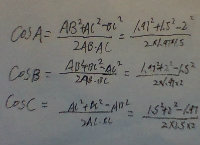 CosA = (AB²+AC²-BC²)/(2AB·AC) = (1.97²+1.5²-2²)/(2×1.97×1.5)
CosB = (AB²+BC²-AC²)/(2AB·BC) = (1.97²+2²-1.5²)/(2×1.97×2)
CosC = (AC²+BC²-AB²)/(2AC·BC) = (1.5²+2²-1.97²)/(2×1.5×2)